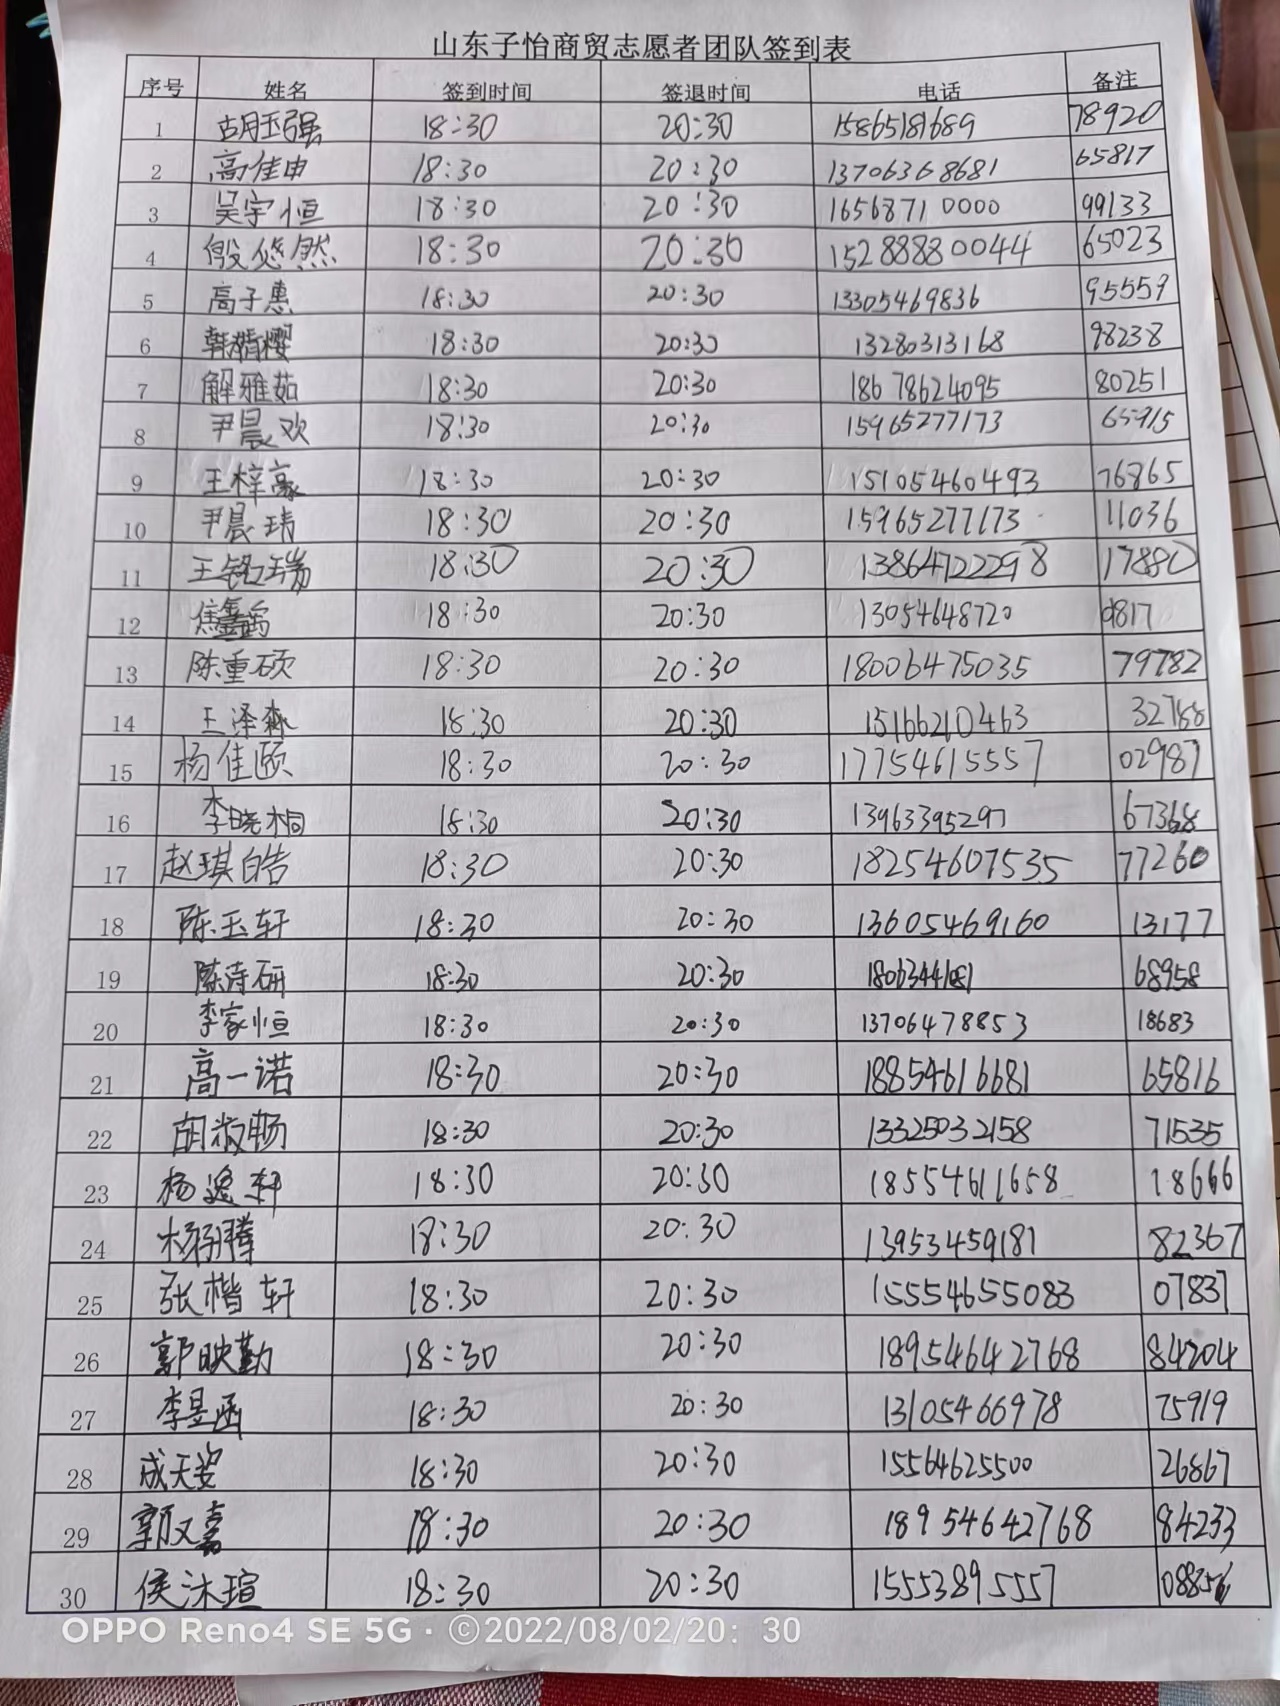 山东子怡商贸志愿者团队签到表
序号 姓名 签到时间 签退时间 电话 备注
1 胡玉强 18:30 20:30 15865181689 78920
2 高佳申 18:30 20:30 13706368681 65817
3 吴宇恒 18:30 20:30 16568710000 99133
4 殷悠然 18:30 20:30 15288880044 65023
5 高子惠 18:30 20:30 13305469836 95559
6 韩婧樱 18:30 20:30 13280313168 98238
7 解雅茹 18:30 20:30 18678624095 80251
8 尹晨欢 18:30 20:30 15965277173 65915
9 王梓豪 18:30 20:30 15105460493 76865
10 尹晨琦 18:30 20:30 15965277173 11036
11 王铭瑞 18:30 20:30 13864122298 17880
12 焦鑫 18:30 20:30 13054648720 0817
13 陈重硕 18:30 20:30 18006475035 79782
14 王泽森 18:30 20:30 15166210463 32788
15 杨佳颐 18:30 20:30 17754615557 02987
16 李晓桐 18:30 20:30 13963395297 67368
17 赵琪皓 18:30 20:30 18254607535 77260
18 陈玉轩 18:30 20:30 13605469160 13177
19 陈诗研 18:30 20:30 18063441081 68958
20 李家恒 18:30 20:30 13706478853 18683
21 高一诺 18:30 20:30 18854616681 65816
22 胡 畅 18:30 20:30 13325032158 71535
23 杨逸轩 18:30 20:30 18554611658 18666
24 杨 腾 18:30 20:30 13953459181 82367
25 张楷轩 18:30 20:30 15554655083 07837
26 郭映勤 18:30 20:30 18954642768 84204
27 李昱函 18:30 20:30 13105466978 75919
28 成天姿 18:30 20:30 15564625500 26867
29 郭又嘉 18:30 20:30 18954642768 84233
30 侯沐瑄 18:30 20:30 15553895557 08856
OPPO Reno4 SE 5G · ©2022/08/02/20：30